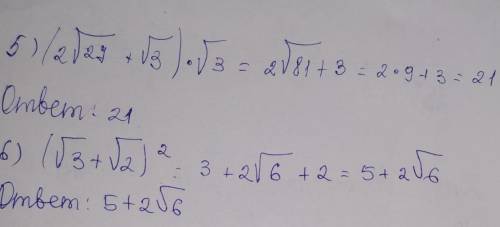 5) (2√27 + √3) • √3 = 2√81 + 3 = 2•9+3 = 21
Ответ: 21
6) (√3 + √2)² = 3 + 2√6 + 2 = 5 + 2√6
Ответ: 5+2√6